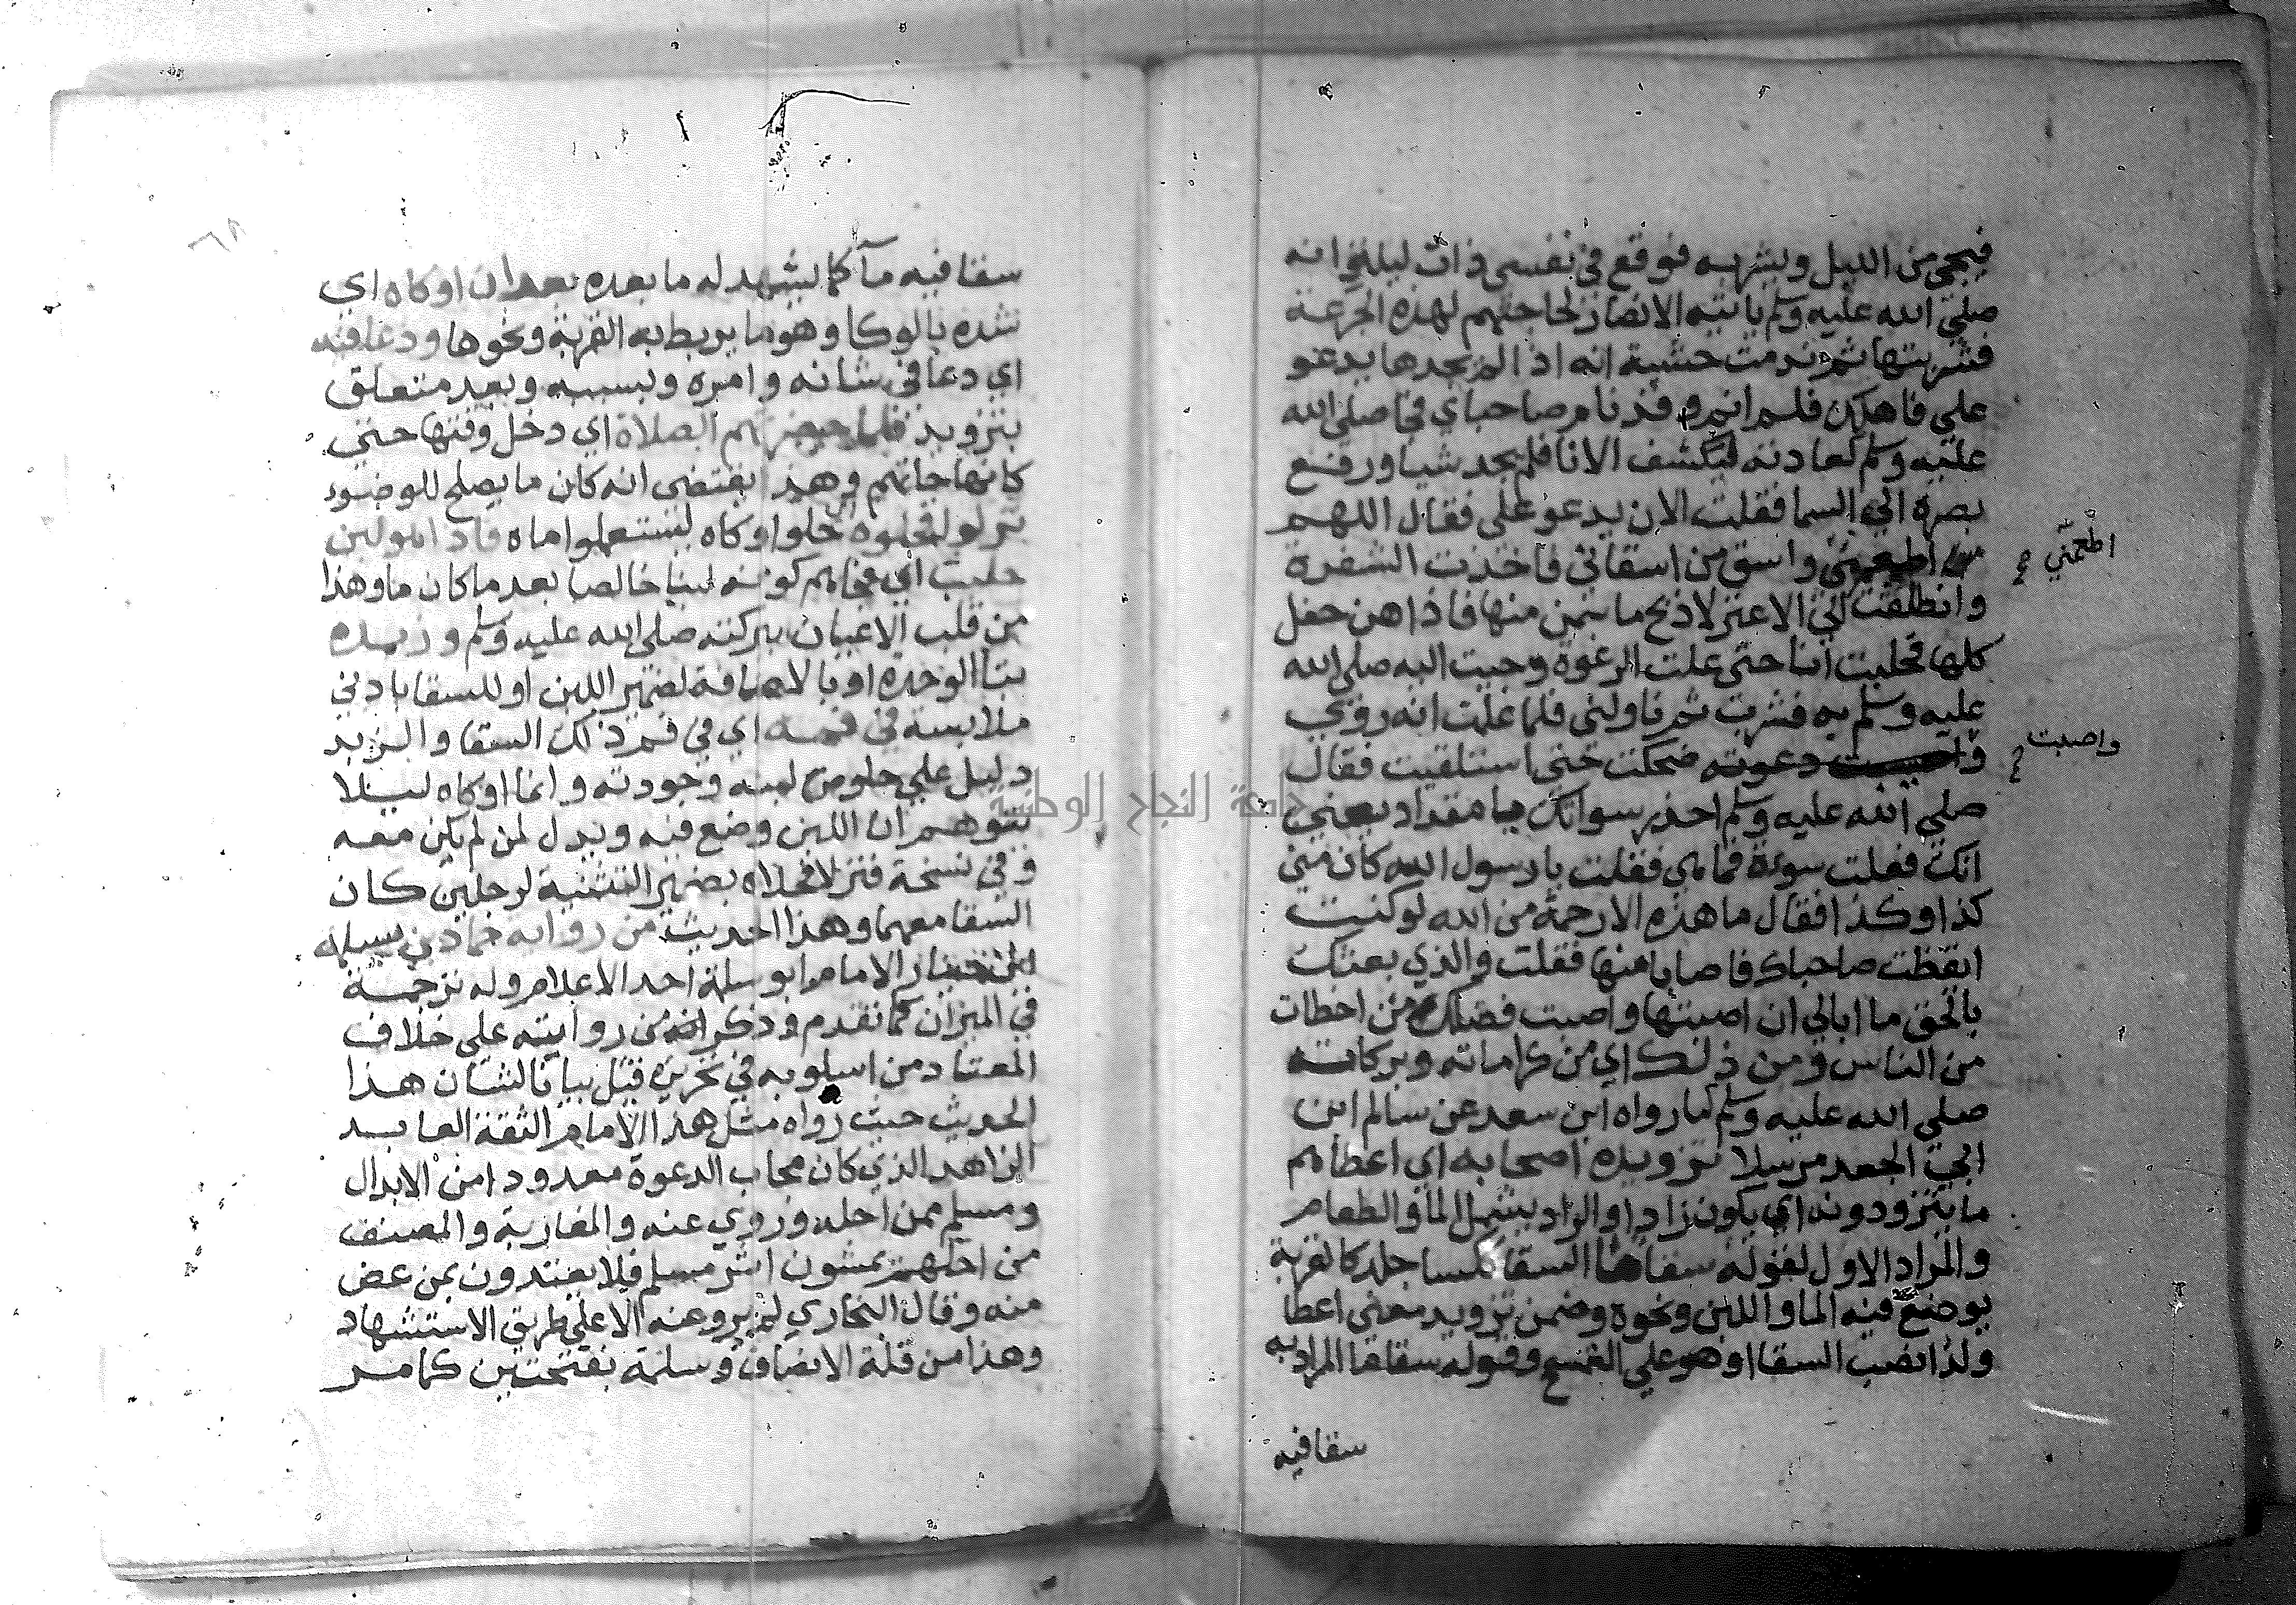 فيجي من الليل ويشربه فوقع في نفسي ذات ليلة انه
صلي الله عليه وسلم ياتيه الانصار لحاجتهم لهذه الجرعة
فشربتها ثم ندمت خشية انه اذا لم يجدها يدعو
علي فاهلك فلم انم وقد نام صاحباي فجا صلي الله
عليه وسلم لعادته ليكشف الانا فلم يجد شيا ورفع
بصره الي السما فقلت الان يدعو علي فقال اللهم
من اطعمني واسق من اسقاني فاخذت الشفرة
اطعمني
وانطلقت الي الاعنز لاذبح ما سمن منها فاذا هن حفل
كلها فحلبت انا حتي علت الرغوة وجيت اليه صلي الله
عليه وسلم به فشرب ثم ناولني فلما علمت انه روي
واصبت دعوته ضحكت حتي استلقيت فقال
واصبت
صلي الله عليه وسلم احذر سواتك يا مقداد يعني
انك فعلت سوءة فما هي فقلت يا رسول الله كان مني
كذا وكذا فقال ما هذه الا رحمة من الله لو كنت
ايقظت صاحباك فاصابا منها فقلت والذي بعثك
بالحق ما ابالي ان اصبتها واصبت فضلك من اخطات
من الناس ومن ذلك اي من كراماته وبركاته
صلي الله عليه وسلم ما رواه ابن سعد عن سالم ابن
ابي الجعد مرسلا تزويده اصحابه اي اعطاهم
ما يتزودونه اي يكون زادا والزاد يشمل الما والطعام
والمراد الاول لقوله سقا هنا السقا ككسا جلد كالقربة
يوضع فيه الما واللبن ونحوه وضمن تزويد معني اعطا
ولذا نصب السقا او هو علي التوسع وقوله سقا ما المراد به
سقا فيه
سقا فيه مآ كما يشهد له ما بعده بعد ان اوكاه اي
شده بالوكا وهو ما يربط به القربة ونحوها ودعا فيه
اي دعا في شانه وامره وبسببه وبعد متعلق
بتزويد فلما حضرتهم الصلاة اي دخل وقتها حتي
كانها جاتهم وهذا يقتضي انه كان ما يصلح للوضوء
نزلوا فحلوه حلوا وكاه ليستعملوا ماه فاذا هو لبن
حليب اي فجاهم كونه لبنا خالصا بعد ما كان ما وهذا
من قلب الاعيان ببركته صلي الله عليه وسلم وزبده
بتا الوحدة او بالاضافة لضمير اللبن او للسقا بادني
ملابسة في فمه اي في فم ذلك السقا والزبد
دليل علي خلوص لبنه وجودته وانما اوكاه ليلا
يتوهم ان اللبن وضع فيه وبدل لمن لم يكن معه
وفي نسخة فنزلا فحلاه بضمير التثنية لرجلين كان
السقا معهما وهذا الحديث من رواية حماد بن سلمه
ابن دينار الامام ابو سلمة احد الاعلام وله ترجمة
في الميزان كما تقدم وذكر انه من روايته علي خلاف
المعتاد من اسلوبه في تخريج قيل بيانا لشان هذا
الحديث حيث رواه مثل هذا الامام الثقة العابد
الزاهد الذي كان مجاب الدعوة معدودا من الابدال
ومسلم ممن اجله وروي عنه والمغاربة والمصنف
من اجلهم يمشون اثر مسلم فلا يعتدون بمن غض
منه وقال البخاري لم يرو عنه الا علي طريق الاستشهاد
وهذا من قلة الانصاف وسلمة بفتحتين كما مر
جامعة النجاح الوطنية